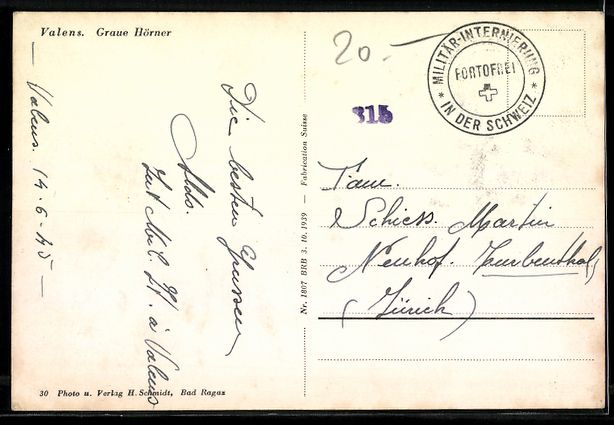 Valens. Graue Hörner
20.—
MILITÄR-INTERNIERUNG
PORTOFREI
* IN DER SCHWEIZ *
315
— Valens. 14-6-45 —
Die besten
Aldo.
Int Mil à Valens
Fam.
Schiess. Martin
Neuhof. Turbenthal,
(Zürich)
Nr. 1807 BRB 3. 10. 1939 — Fabrication Suisse
30 Photo u. Verlag H. Schmidt, Bad Ragaz